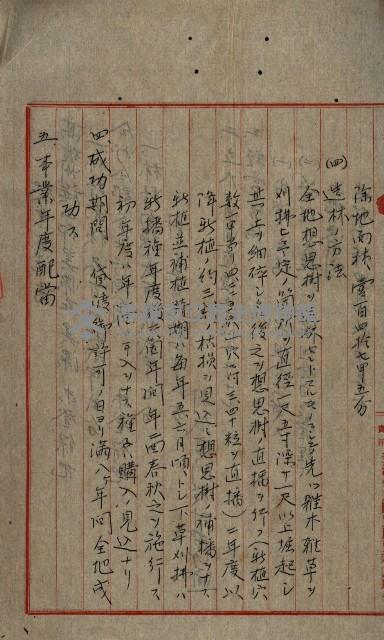 除地面積、壹百四拾七甲五分
(四)造林ノ方法
全地想思樹ヲ造林セントスルモノニシテ先ツ雜木雜草ヲ
刈拂ヒ予定ノ箇所ヲ直徑一尺五寸深サ一尺以上堀起シ
其ノ土ヲ細碎シタル後之ニ想思樹ノ直播ヲ行フ(新植穴
數一甲
穴ニ付三、四十粒ヲ直播)二年度以
降新植ノ約三割枯損ヲ見込ミ想思樹ノ補播ヲナス
新植並補植時期ハ每年五六月頃トシ下草刈拂ハ
新播種年度
箇年間年二回春秋之ヲ施行ス
初年度ハ年
手入ヲナス種子ハ購入ノ見込ナリ
四、成功期間 貸渡御許可ノ日ヨリ滿八ヶ年間全地成
功ス
五、事業年度配當